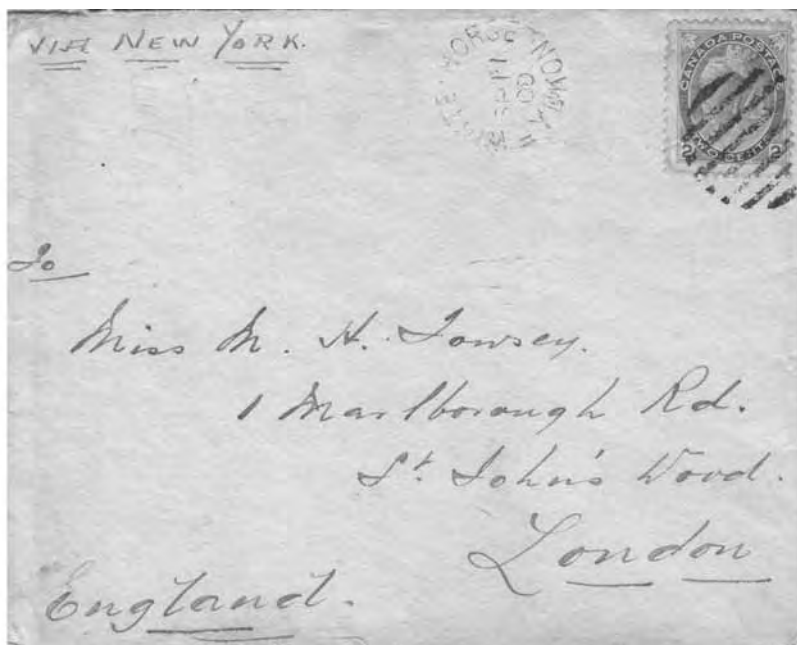 VIA NEW YORK.
CANADA POSTAGE
2 TWO CENTS 2
To
Miss M. H. Towsey.
1 Marlborough Rd.
St. John's Wood.
London
England.